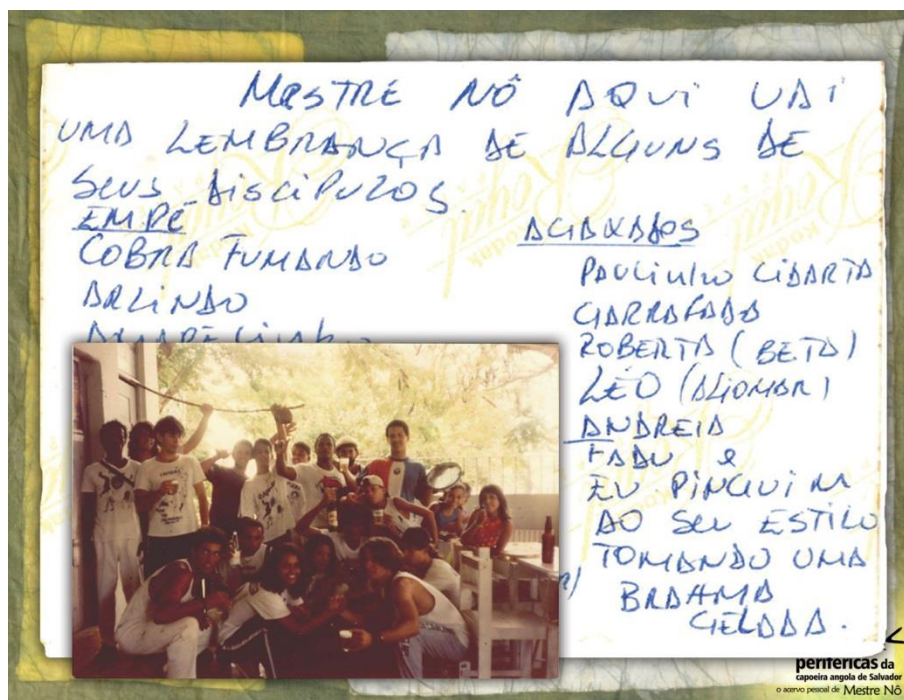 MESTRE NÔ AQUI VAI
UMA LEMBRANÇA DE ALGUNS DE
SEUS DISCIPULOS.
EM PÉ
COBRA FUMANDO
ARLINDO
AGAIXADOS
PAULINHO
GARRAFADA
ROBERTA (BETA)
LÉO
ANDREIA
FADU e
EU PINGUIM
AO SEU ESTILO
TOMANDO UMA
BRAHMA
GELADA.
Royal
Kodak
Royal
Kodak
Royal
Kodak
perifericas da
capoeira angola de Salvador
o acervo pessoal de Mestre Nô